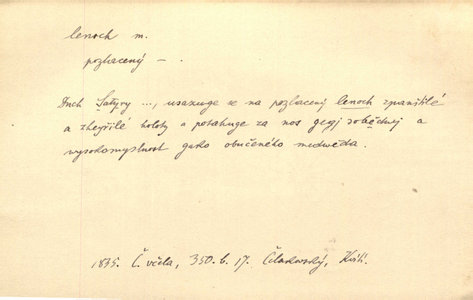 lenoch m.
pozlacený – .
Duch Satyry ..., usazuge se na pozlacený lenoch zpanštilé
a zheyřilé holoty a potahuge za nos gegj sobědnej a
vysokomyslnost gako obučeného medwěda.
1835. Č. včela, 350. b. 17. Čelakowský, Kvik.